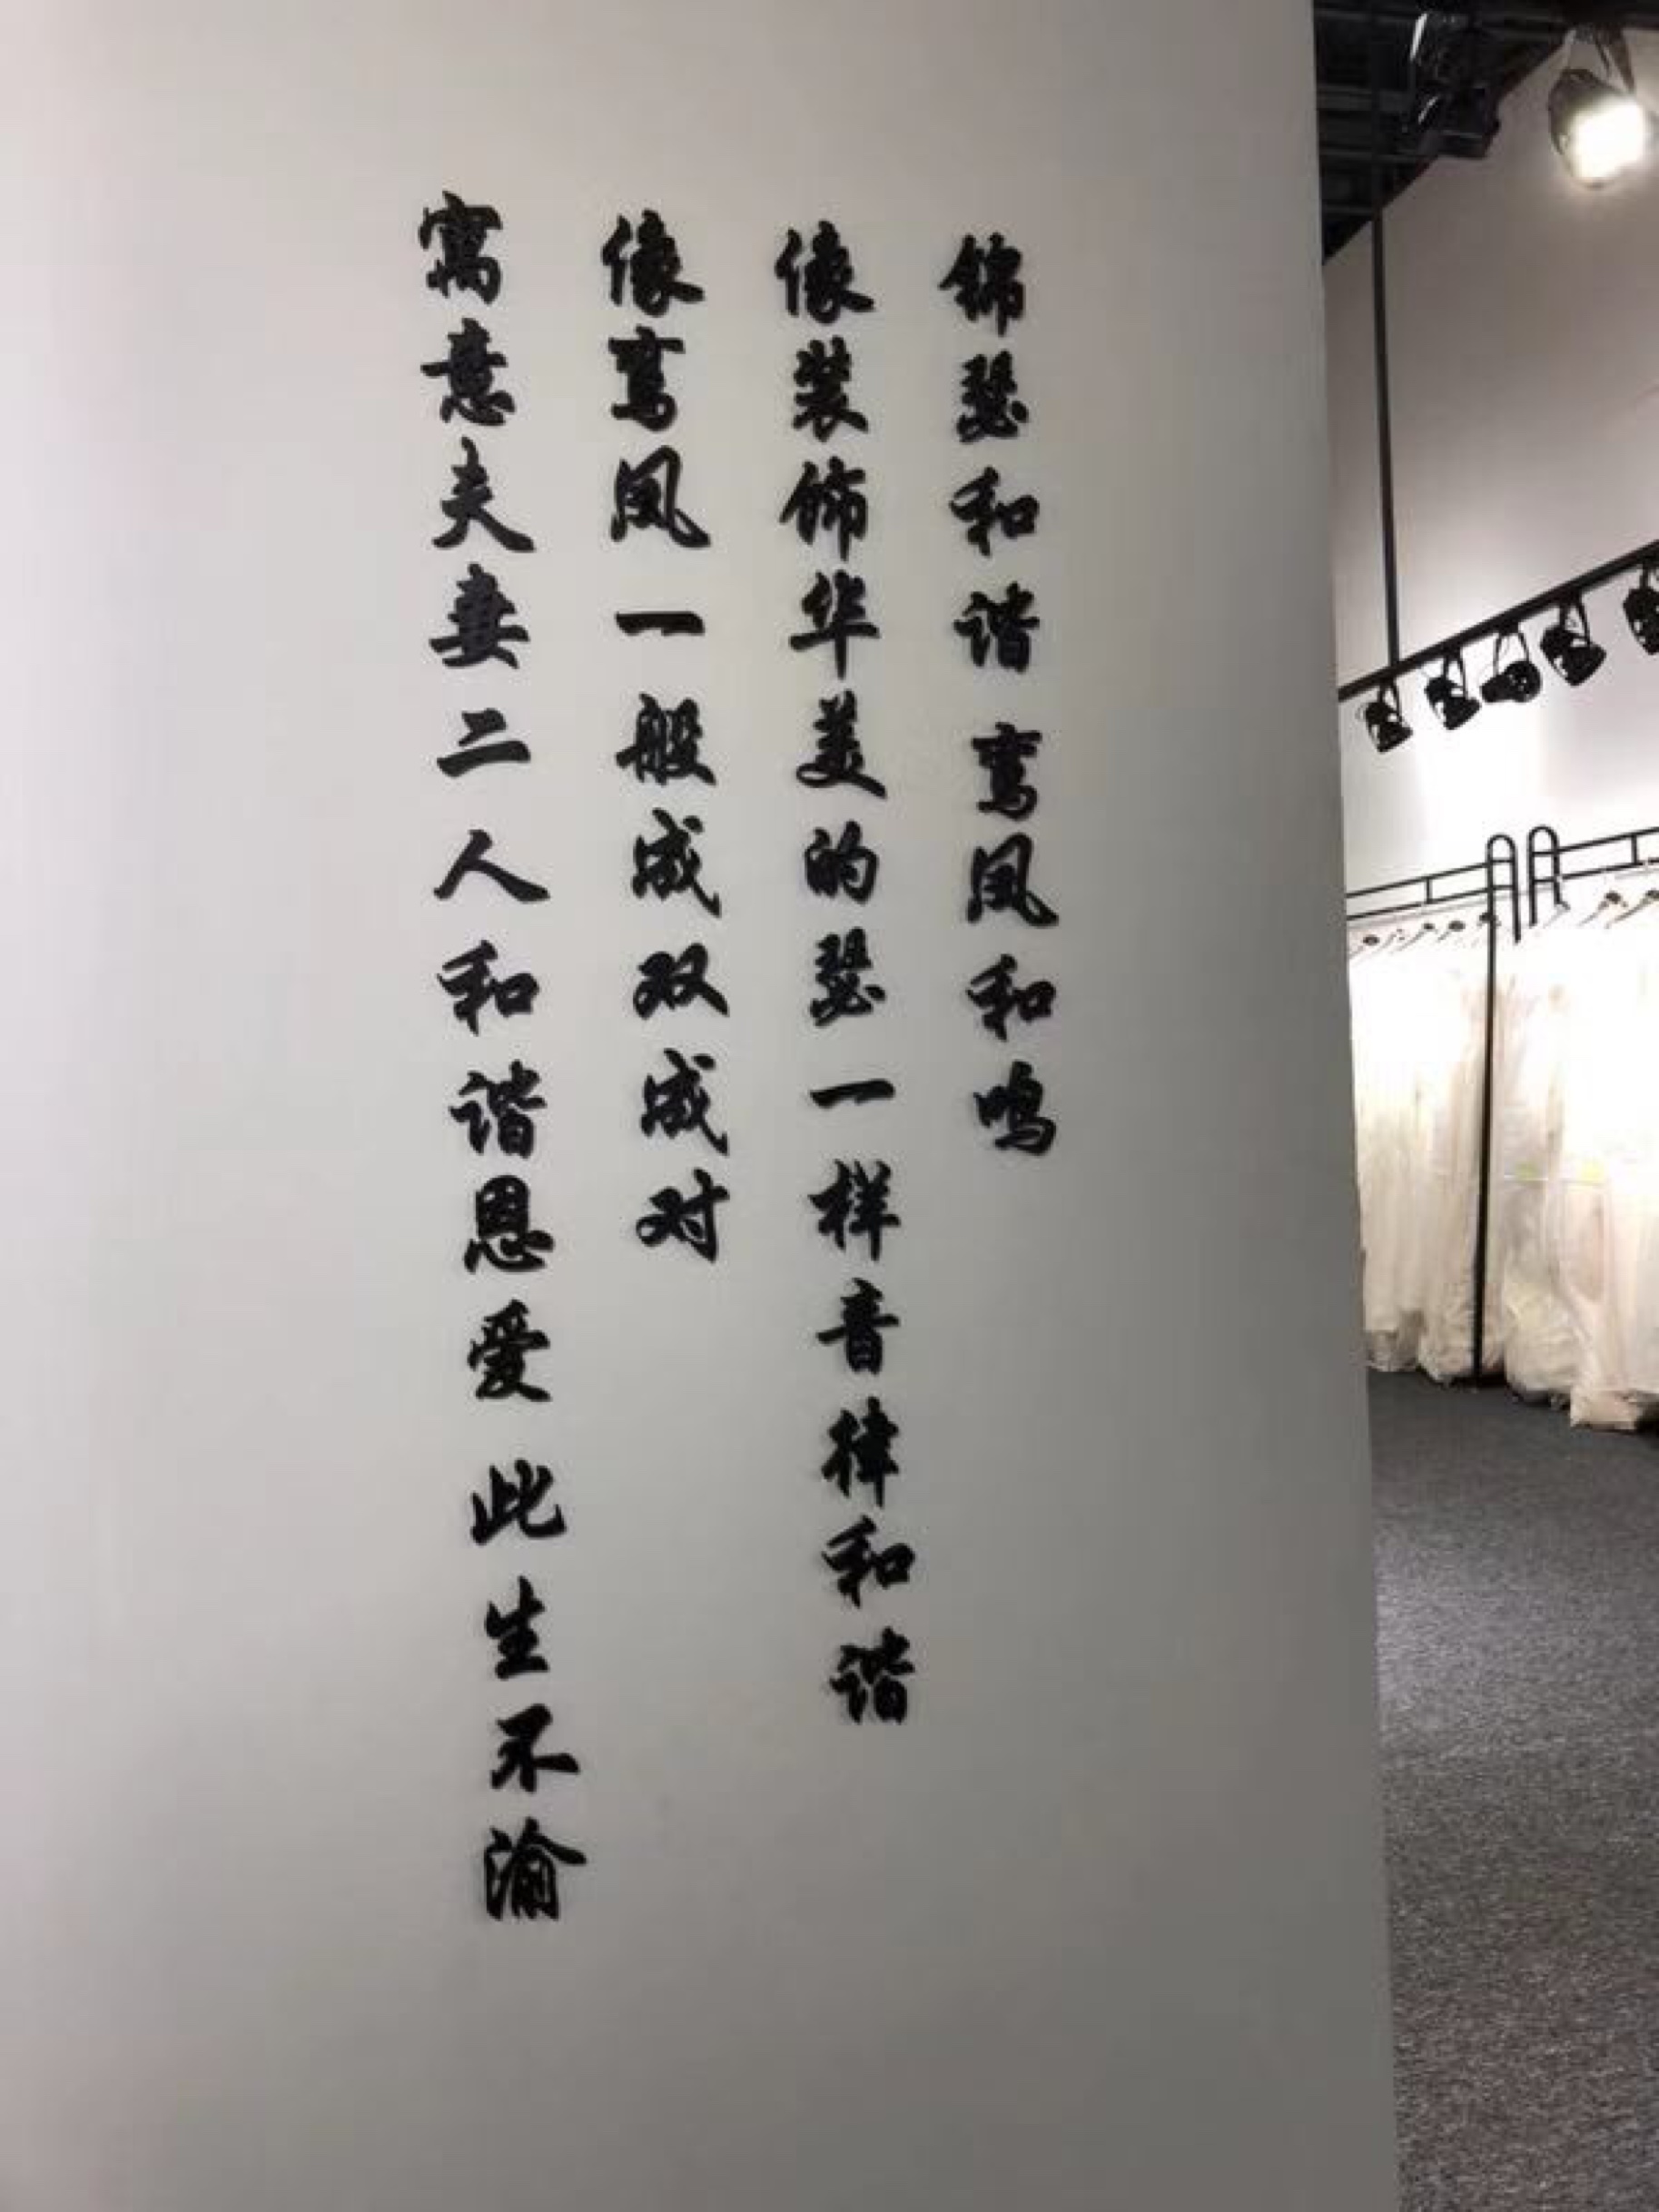 锦瑟和谐 鸾凤和鸣
像装饰华美的瑟一样音律和谐
像鸾凤一般成双成对
寓意夫妻二人和谐恩爱 此生不渝